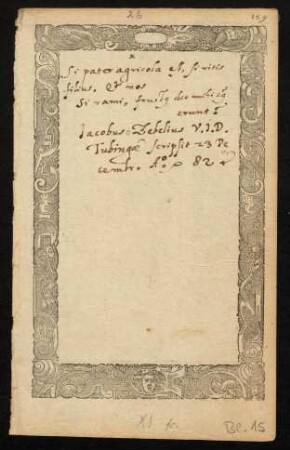 26
159
Si pater agricola est, si vitis
filius, et nos
Si rami, fructus
erunt
Jacobus Zebelius V.I.D.
Tubingæ scripsit 23 De
cembr. Aº 82
XI
Bl. 15